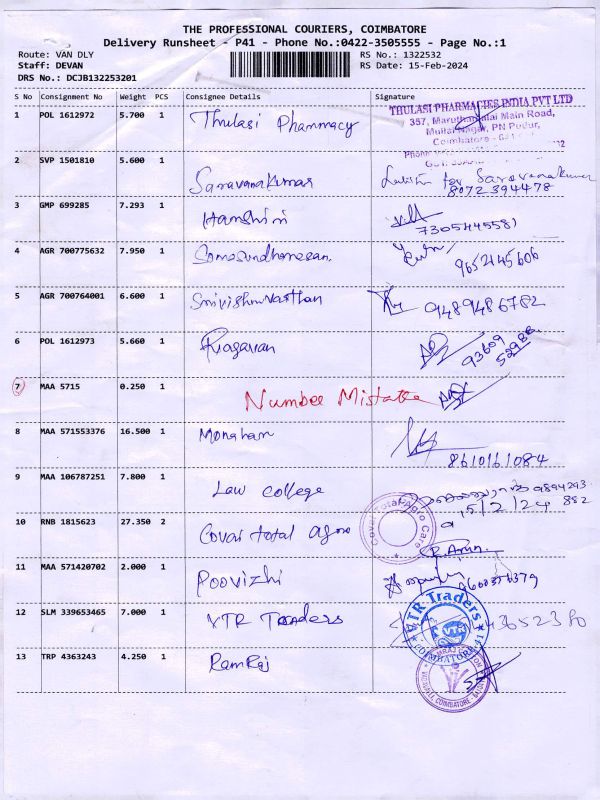 THE PROFESSIONAL COURIERS, COIMBATORE
Delivery Runsheet - P41 - Phone No.:0422-3505555 - Page No.:1
Route: VAN DLY
RS No.: 1322532
Staff: DEVAN
RS Date: 15-Feb-2024
DRS No.: DCJB132253201
S No Consignment No Weight PCS Consignee Details Signature
1 POL 1612972 5.700 1 Thulasi Phammacy
THULASI PHARMACIES INDIA PVT LTD
357, Maruthamalai Main Road,
Mullai Nagar, PN Pudur,
Coimbatore - 641
2 SVP 1501810 5.600 1 Saravanakumar
for Saravanakumar
8072394478
3 GMP 699285 7.293 1 Hamshini
7305445581
4 AGR 700775632 7.950 1
9652145606
5 AGR 700764001 6.600 1
9489486782
6 POL 1612973 5.660 1
93609
52988
7 MAA 5715 0.250 1 Number Mistake
8 MAA 571553376 16.500 1 Monaham
8610161084
9 MAA 106787251 7.800 1 Law college
9894293
15/2/24 882
10 RNB 1815623 27.350 2 Covai total agro
Covai Total Agro Care
11 MAA 571420702 2.000 1 Poovizhi
12 SLM 339653465 7.000 1 VTR Traders
VTR Traders
VTR
COIMBATORE 41
13 TRP 4363243 4.250 1 RamRaj